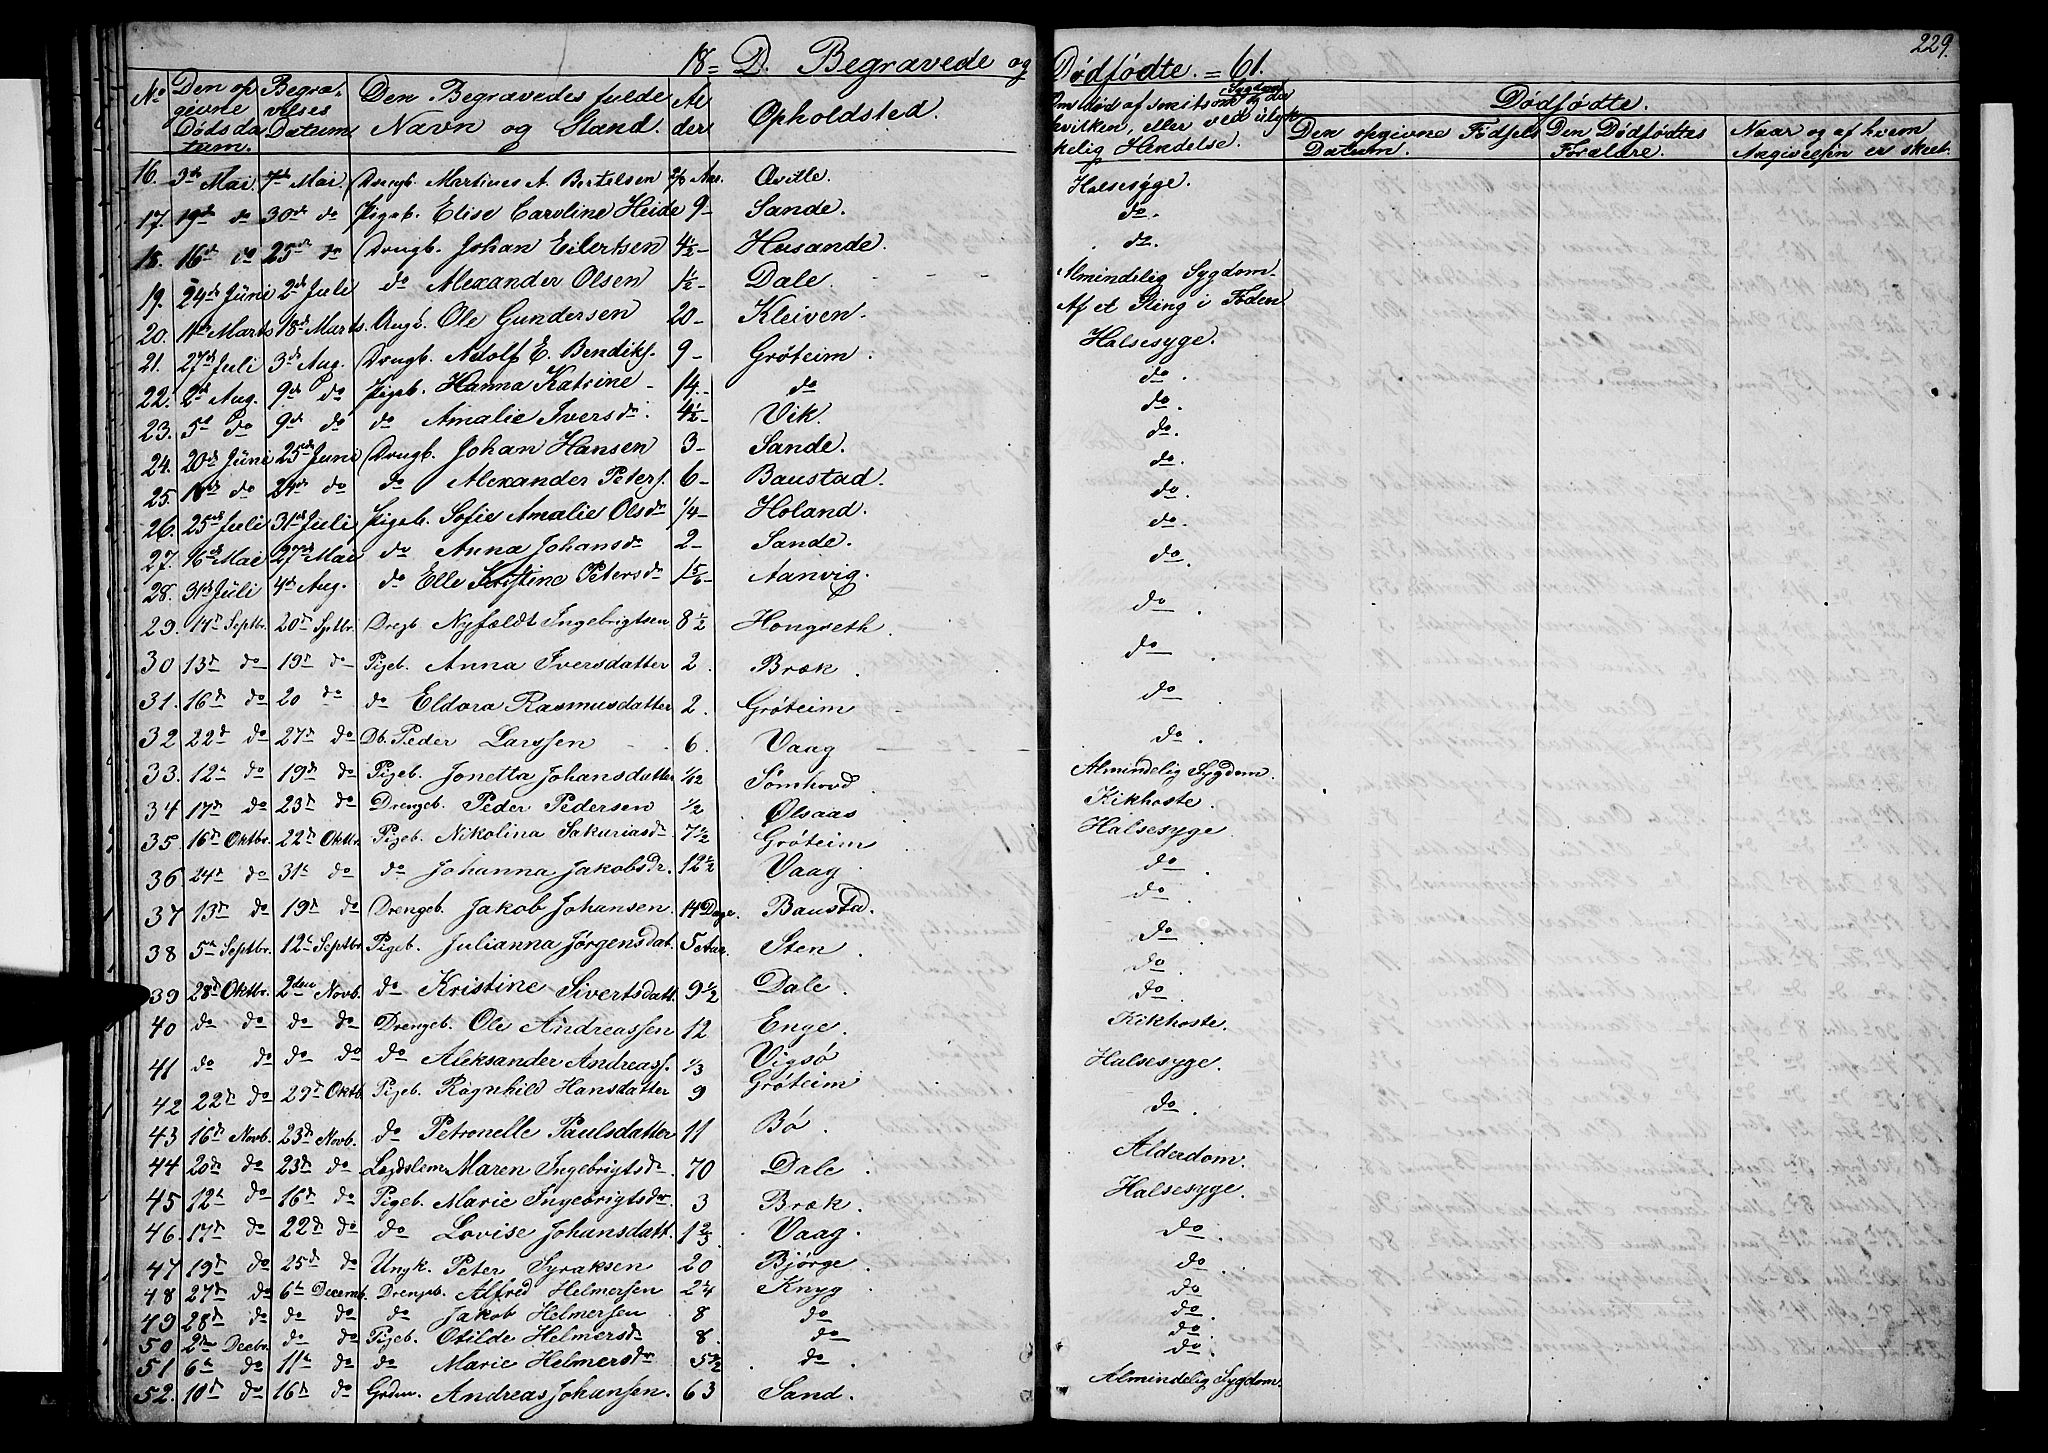 229.
18= D. Begravede og Dødfødte. = 61.
No
Den opgivne Dødsdatum.
Begravelses Datum
Den Begravedes fulde Navn og Stand.
Alder
Opholdsted.
Om død af smitsom Sygdom og da hvilken, eller ved ulykkelig Hendelse.
Dødfødte.
Den opgivne Fødsels Datum.
Den Dødfødtes Forældre.
Naar og af hvem Angivelsen er skeet.
16. 3de Mai. 7de Mai. Drngb. Martines A. Bertelsen Aar. Halsesyge.
17. 19de do 30de do Pigeb. Elise Caroline Heide 9 - Sande. do.
18. 16de do 25de do Drngb. Johan Eilertsen 4½ - Husande. do.
19. 24de Juni 2de Juli do Alexander Olsen ½ - Dale. Almindelig Sygdom.
20. 11te Marts 18de Marts. Ungk. Ole Gundersen 20 - Kleiven. Af et Sting i Foden
21. 27de Juli 3de Aug. Drngb. Adolf E. Bendiks. 9 - Grøteim. Halsesyge.
22. 2de Aug. 9de do Pigeb. Hanna Katrine - 14. - do do.
23. 5te do 9de do do Amalie Iversdr. 4½ - Vik. do.
24. 20de Juni 25de Juni Drngb. Johan Hansen 3 - Sande. do.
25. 18de do 24de do do Alexander Peters. 6 - Baustad. do.
26. 25de Juli 31de Juli Pigeb. Sofie Amalie Olsdr 1/4 - Holand. do.
27. 16de Mai 27de Mai do Anna Johansdr 2 - Sande. do.
28. 31de Juli 4de Aug. do Elle Kristine Petersdr 1 5/6 - Aanvig. do.
29. 14de Septbr. 20de Septbr. Dregb. Nyfældt Ingebrigtsen 8½ Hongseth. do
30 13de do 19de do Pigeb. Anna Iversdatter 2. Bræk. do.
31. 16de do 20 do do Eldora Rasmusdatter 2. Grøteim do
32 22de do 27de do Db. Peder Larssen 6. Vaag do.
33. 12te do 19de do Pigeb. Jonetta Johansdatter 1/12 Sømhovd. Almindelig Sygdom.
34 17de do 23de do Drengeb. Peder Pedersen ½ Olsaas Kikhoste.
35. 16de Oktbr. 22de Oktbr. Pigeb. Nikolina Sakuriasdr 7½ Grøteim Halsesyge.
36 24de do 31te do do Johanna Jakobsdr. 12½ Vaag do.
37 13de do 19de do Drengeb. Jakob Johansen. 14 Dage. Baustad. do.
38 5te Septbr. 12te Septbr. Pigeb. Julianna Jørgensdat. 5 Aar. Sten do.
39 28de Oktbr. 2den Novb. do Kristine Sivertsdatt. 9½ Dale. do.
40 do do do do Drengeb. Ole Andreassen 12 Enge. Kikhoste.
41 do do do do do Aleksander Andreass. 1/3 Vigsø Halsesyge.
42 22de do 29de Oktb. Pigeb. Ragnhild Hansdatter 9 Grøteim do.
43 16de Novb. 23de Novb. do Petronelle Paulsdatter 11 Bø.
44 20de do 23de do Lagdslem Maren Ingebrigtsdr. 70 Dale Alderdom.
45 12te do 16de do Pigeb. Marie Ingebrigtsdr. 3 Bræk. Halsesyge.
46. 17de do 22de do do Lovise Johansdatt. 1 2/3 Vaag. do.
47 19de do 25de do Ungk. Peter Syraksen 20 Bjørge. do.
48 27de do 6te Decemb. Drengeb. Alfred Helmersen 2 1/4 Knyg do
49 28de do do do do Jakob Helmersen 8 do do.
50 2den Decbr. do do Pigeb. Otilde Helmersdr 8. do do.
51 6te do 11te do do Marie Helmersdr 5½ do. do.
52. 10de do 16de do Grdm. Andreas Johansen. 63 Sand. Almindelig Sygdom.